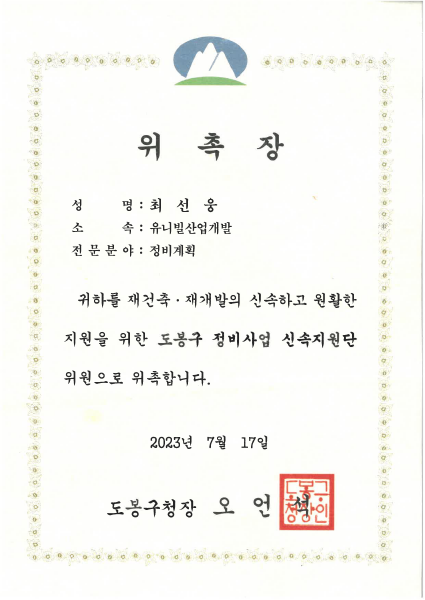 위 촉 장
성 명 : 최 선 웅
소 속 : 유니빌산업개발
전 문 분 야 : 정비계획
귀하를 재건축 · 재개발의 신속하고 원활한
지원을 위한 도봉구 정비사업 신속지원단
위원으로 위촉합니다.
2023년 7월 17일
도봉구청장 오 언 석
도봉구
청장인